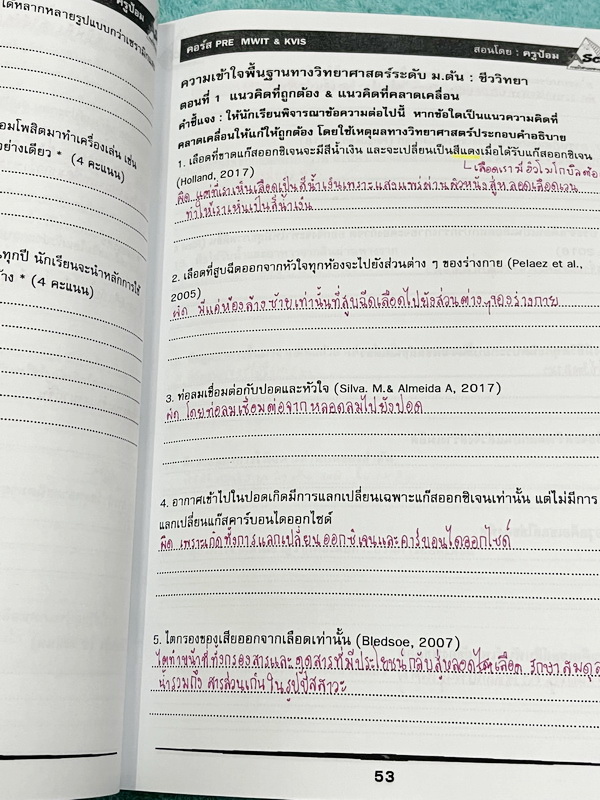 ได้หลากหลายรูปแบบกว่าเซรามิก
อมโพสิตมาทำเครื่องเล่น เช่น
อย่างเดียว * (4 คะแนน)
นทุกปี นักเรียนจะนำหลักการใช้
ง้าง * (4 คะแนน)
คอร์ส PRE MWIT & KVIS
สอนโดย : ครูป้อม
ความเข้าใจพื้นฐานทางวิทยาศาสตร์ระดับ ม.ต้น : ชีววิทยา
ตอนที่ 1 แนวคิดที่ถูกต้อง & แนวคิดที่คลาดเคลื่อน
คำชี้แจง : ให้นักเรียนพิจารณาข้อความต่อไปนี้ หากข้อใดเป็นแนวคิดที่
คลาดเคลื่อนให้แก้ให้ถูกต้อง โดยใช้เหตุผลทางวิทยาศาสตร์ประกอบคำอธิบาย
1. เลือดที่ขาดแก๊สออกซิเจนจะมีสีน้ำเงิน และจะเปลี่ยนเป็นสีแดงเมื่อได้รับแก๊สออกซิเจน
(Holland, 2017)
เลือดเรามีฮีโมโกบิล
ผิด แต่ที่เราเห็นเลือดเป็นสีน้ำเงินเพราะแสงแพร่ผ่านผิวหนังสู่หลอดเลือดเวน
ทำให้เราเห็นเป็นสีน้ำเงิน
2. เลือดที่สูบฉีดออกจากหัวใจทุกห้องจะไปยังส่วนต่าง ๆ ของร่างกาย (Pelaez et al.,
2005)
ผิด มีแค่ห้องล่างซ้ายเท่านั้นที่สูบฉีดเลือดไปยังส่วนต่างๆของร่างกาย
3. ท่อลมเชื่อมต่อกับปอดและหัวใจ (Silva. M.& Almeida A, 2017)
ผิด โดยท่อลมเชื่อมต่อจากหลอดลมไปยังปอด
4. อากาศเข้าไปในปอดเกิดมีการแลกเปลี่ยนเฉพาะแก๊สออกซิเจนเท่านั้น แต่ไม่มีการ
แลกเปลี่ยนแก๊สคาร์บอนไดออกไซด์
ผิด เพราะเกิดทั้งการแลกเปลี่ยนออกซิเจนและคาร์บอนไดออกไซด์
5. ไตกรองของเสียออกจากเลือดเท่านั้น (Bledsoe, 2007)
ไตทำหน้าที่ทั้งกรองสารและดูดสารที่มีประโยชน์กลับสู่หลอดเลือด รักษาสมดุล
น้ำรวมถึง สารส่วนเกินในรูปปัสสาวะ
53